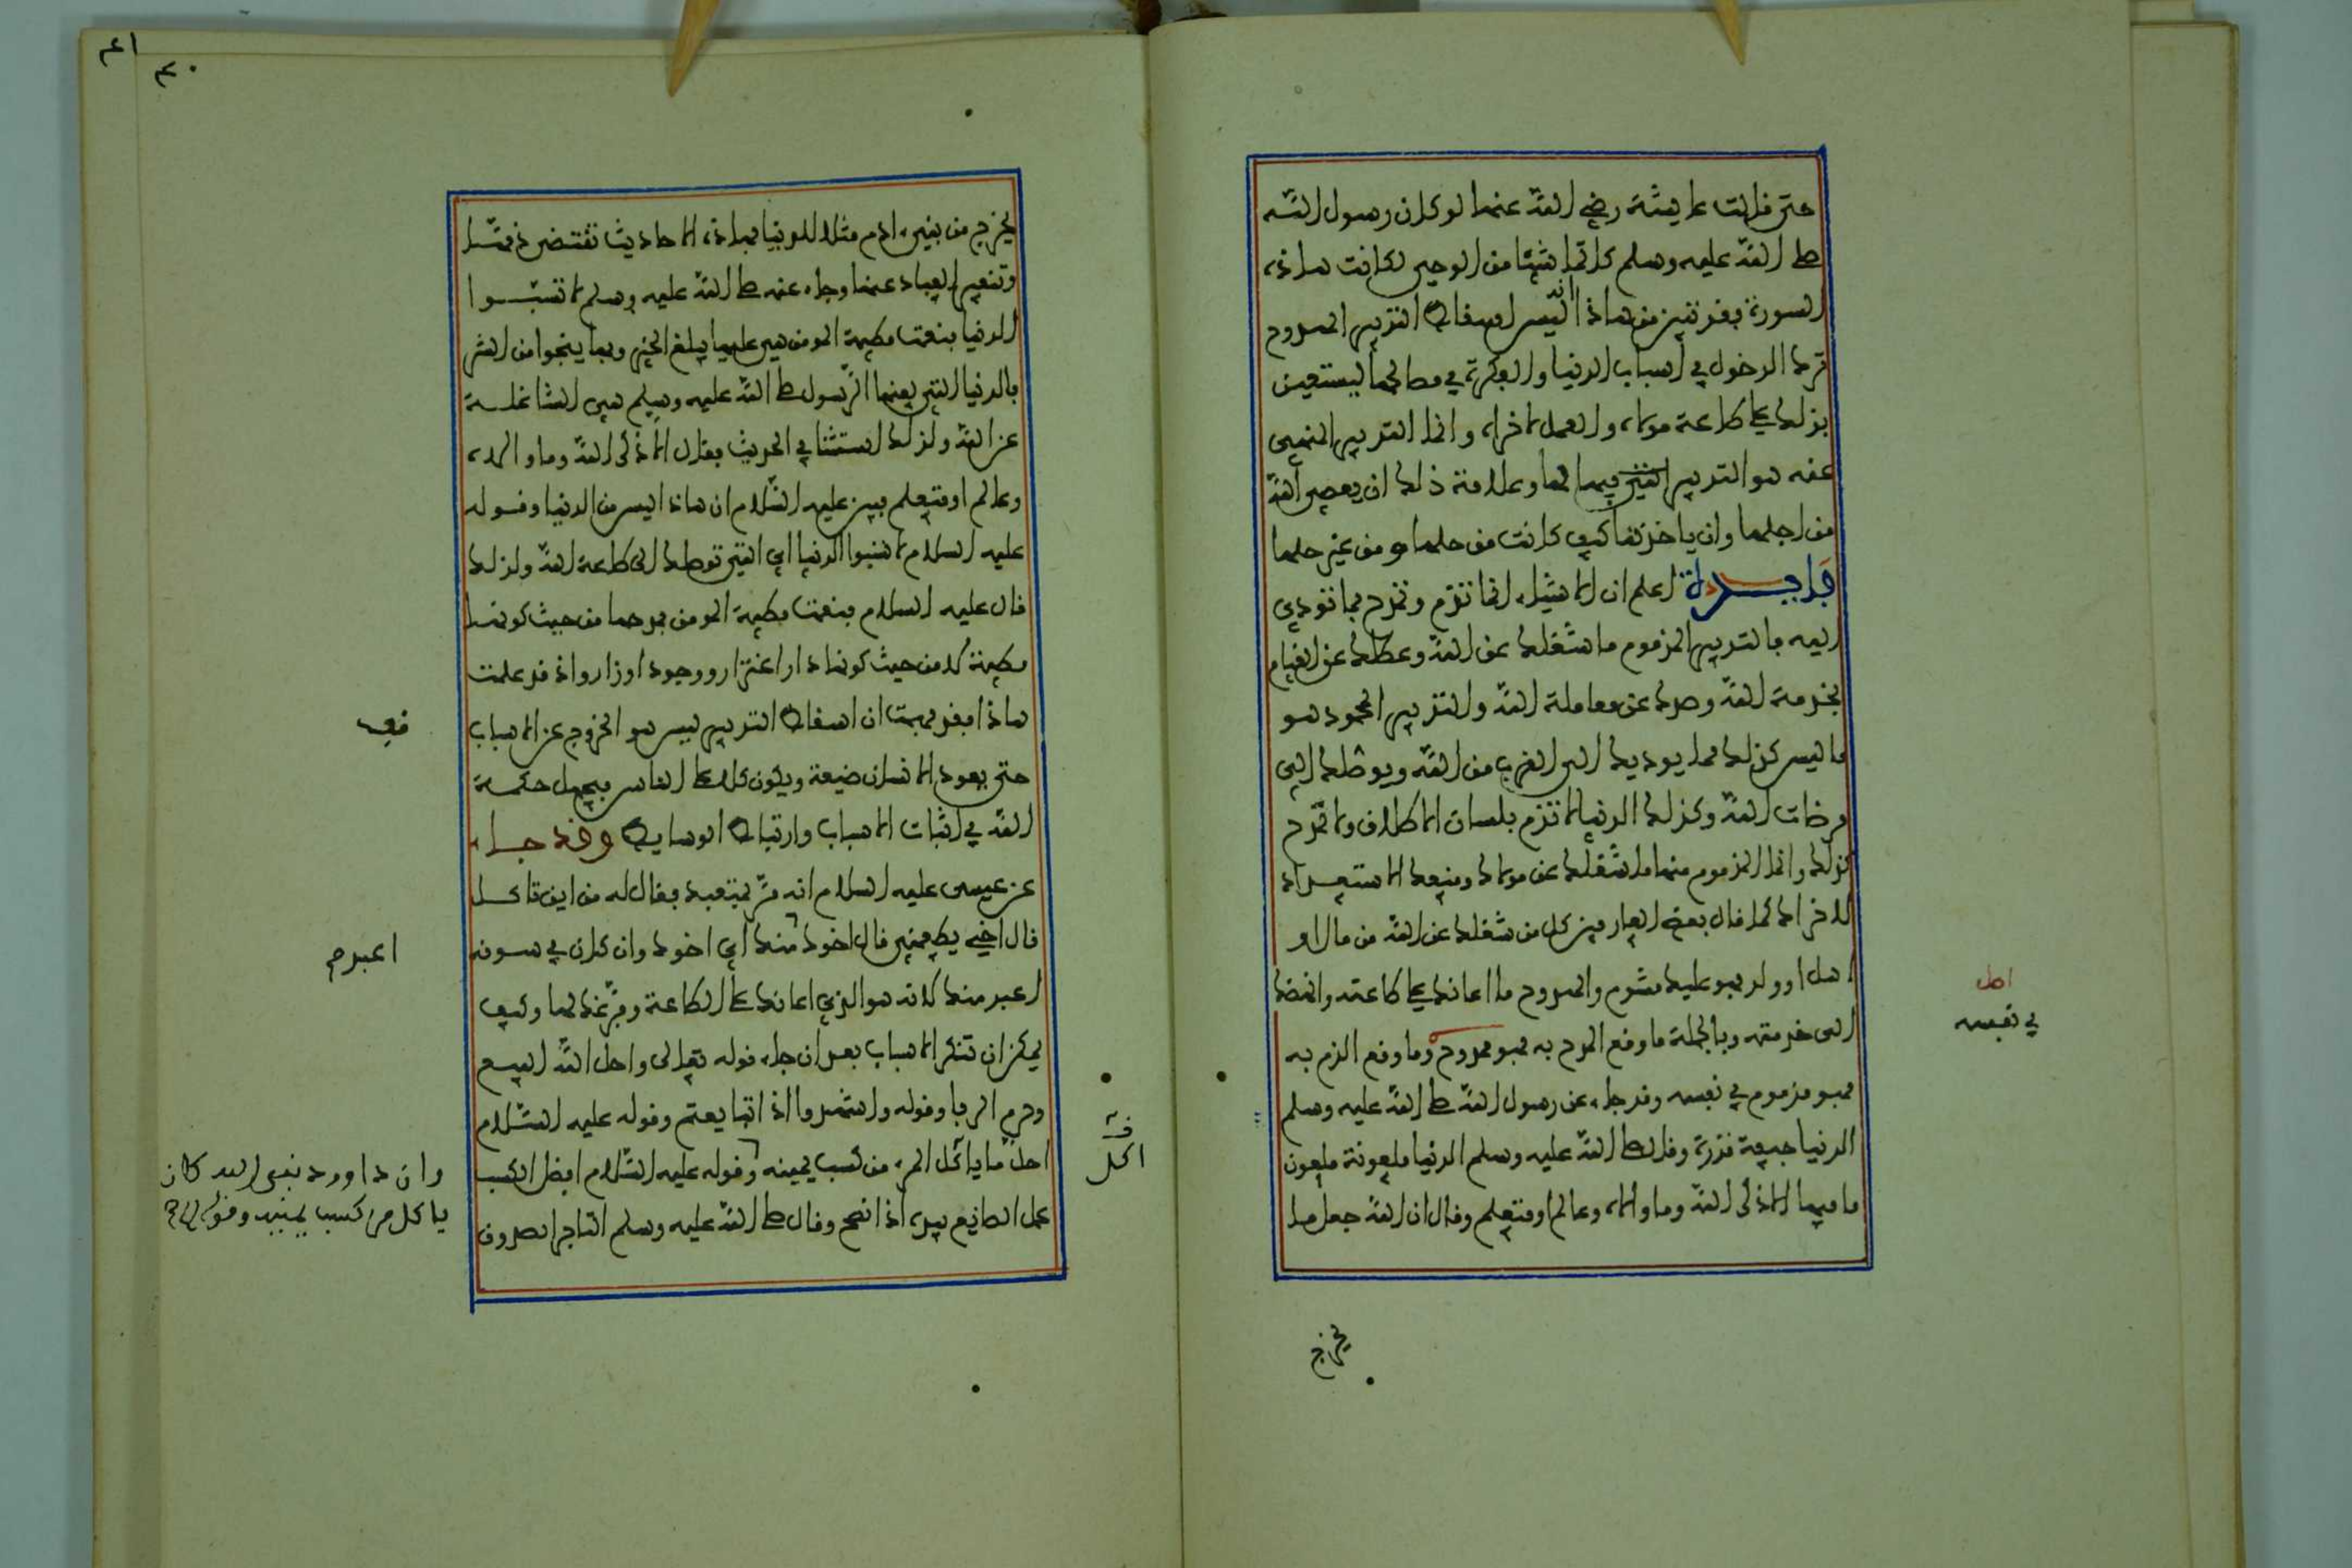 حتى قالت عايشة رضي الله عنها لو كان رسول الله
صلى الله عليه وسلم كاتما شيئا من الوحي لكانت هاذه
السورة فقد تبين من هاذا انه ليس اسقاط التدبير الممدوح
ترك الدخول في اسباب الدنيا والفكرة في مصالحها ليستعين
بذلك على طاعة مولاه والعمل لاخراه وانما التدبير المنهي
عنه هو التدبير فيها لها وعلامة ذلك ان يعصي الله
من اجلها وان ياخذها كيف كانت من حلها ومن غير حلها
فايدة اعلم ان الاشياء انما تذم وتمدح بما تودي
اليه فالتدبير المذموم ما شغلك عن الله وعطلك عن القيام
بخدمة الله وصدك عن معاملة الله والتدبير المحمود هو
ما ليس كذلك مما يوديك الى القرب من الله ويوصلك الى
مرضات الله وكذلك الدنيا لا تذم بلسان الاطلاق ولا تمدح
كذلك وانما المذموم منها ما شغلك عن مولاك ومنعك الاستعداد
لاخراك كما قال بعض العارفين كل من شغلك عن الله من مال او
اهل او ولد فهو عليك مشوم والممدوح ما اعانك على طاعته وانهضك
الى خدمته وبالجملة ما وقع المدح به فهو ممدوح وما وقع الذم به
فهو مذموم في نفسه وقد جاء عن رسول الله صلى الله عليه وسلم
الدنيا جيفة قذرة وقال صلى الله عليه وسلم الدنيا ملعونة ملعون
ما فيها الا ذكر الله وما والاه وعالم او متعلم وقال ان الله جعل ما
اصل
في نفسه
يخرج
٤١
٤٠
يخرج من بني ءادم مثلا للدنيا فهاذه الاحاديث تقتضي ذمها
وتنفير العباد عنها وجاء عنه صلى الله عليه وسلم لا تسبوا
الدنيا فنعمت مطية المومن هي عليها يبلغ الخير وبها ينجوا من الشر
فالدنيا التي لعنها الرسول صلى الله عليه وسلم هي الشاغلة
عن الله ولذلك استثنا في الحديث فقال الا ذكر الله وما والاه
وعالم او متعلم فبين عليه السلام ان هاذا ليس من الدنيا وقوله
عليه السلام لا تسبوا الدنيا اي التي توصلك الى طاعة الله ولذلك
قال عليه السلام فنعمت مطية المومن فمدحها من حيث كونها
مطية لا من حيث كونها دار اغترار ووجود اوزار واذ قد علمت
هاذا فقد فهمت ان اسقاط التدبير ليس هو الخروج عن الاسباب
حتى يعود الانسان ضيعة ويكون كلا على الناس فيجهل حكمة
الله في اثبات الاسباب وارتباط الوسايط وقد جاء
عن عيسى عليه السلام انه مر بمتعبد فقال له من اين تاكل
قال اخي يطعمني قال اخوك اعبد منك اي اخوك وان كان في سوقه
اعبد منك لانه هو الذي اعانك على الطاعة وفرغك لها وكيف
يمكن ان تنكر الاسباب بعد ان جاء قوله تعالى واحل الله البيع
وحرم الربا وقوله واشهدوا اذا تبايعتم وقوله عليه السلام
احل ما ياكل المرء من كسب يمينه وقوله عليه السلام افضل الكسب
عمل الصانع بيده اذا نصح وقال صلى الله عليه وسلم التاجر الصدوق
وان داوود نبي الله كان
ياكل من كسب يمينه وقوله
اكل